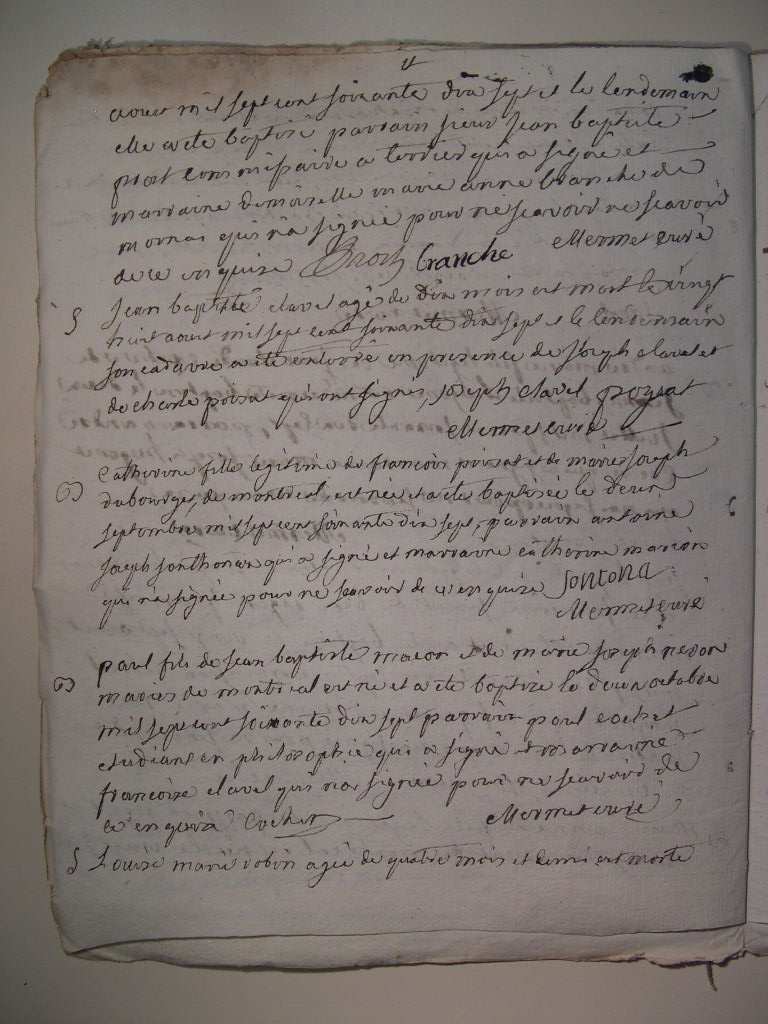 aoust mil sept cent soixante dix sept et le lendemain
elle a ete baptisé parrain sieur Jean baptiste
prost commissaire a terrier qui a signé et
marraine demoiselle marie anne branche de
mornai qui n'a signée pour ne scavoir ne scavoir
de ce enquise Prost branche Mermet curé
§ Jean baptiste clavel agé de dix mois est mort le vingt
huit aoust mil sept cent soixante dix sept et le lendemain
son cadavre a ete enterré en presence de Joseph clavel et
de charle poisat qui ont signés, Joseph clavel poysat
Mermet curé
Catherine fille legitime de francois poisat et de marie Joseph
dubourget, de montreal, est née et a ete baptisée le deux
septembre mil sept cent soixante dix sept, parrain antoine
Joseph Jonthonax qui a signé et marraine catherine marion
qui n'a signée pour ne scavoir de ce enquise Jontona
Mermet curé
paul fils de Jean baptiste macon et de marie Joseph
mariés de montreal est né et a ete baptize le deux octobre
mil sept cent soixante dix sept parrain paul cochet
etudiant en philosophie qui a signé et marraine
francoise clavel qui n'a signée pour ne scavoir de
ce enquise Cochet Mermet curé
§ Louise marie robin agée de quatre mois et demi est morte